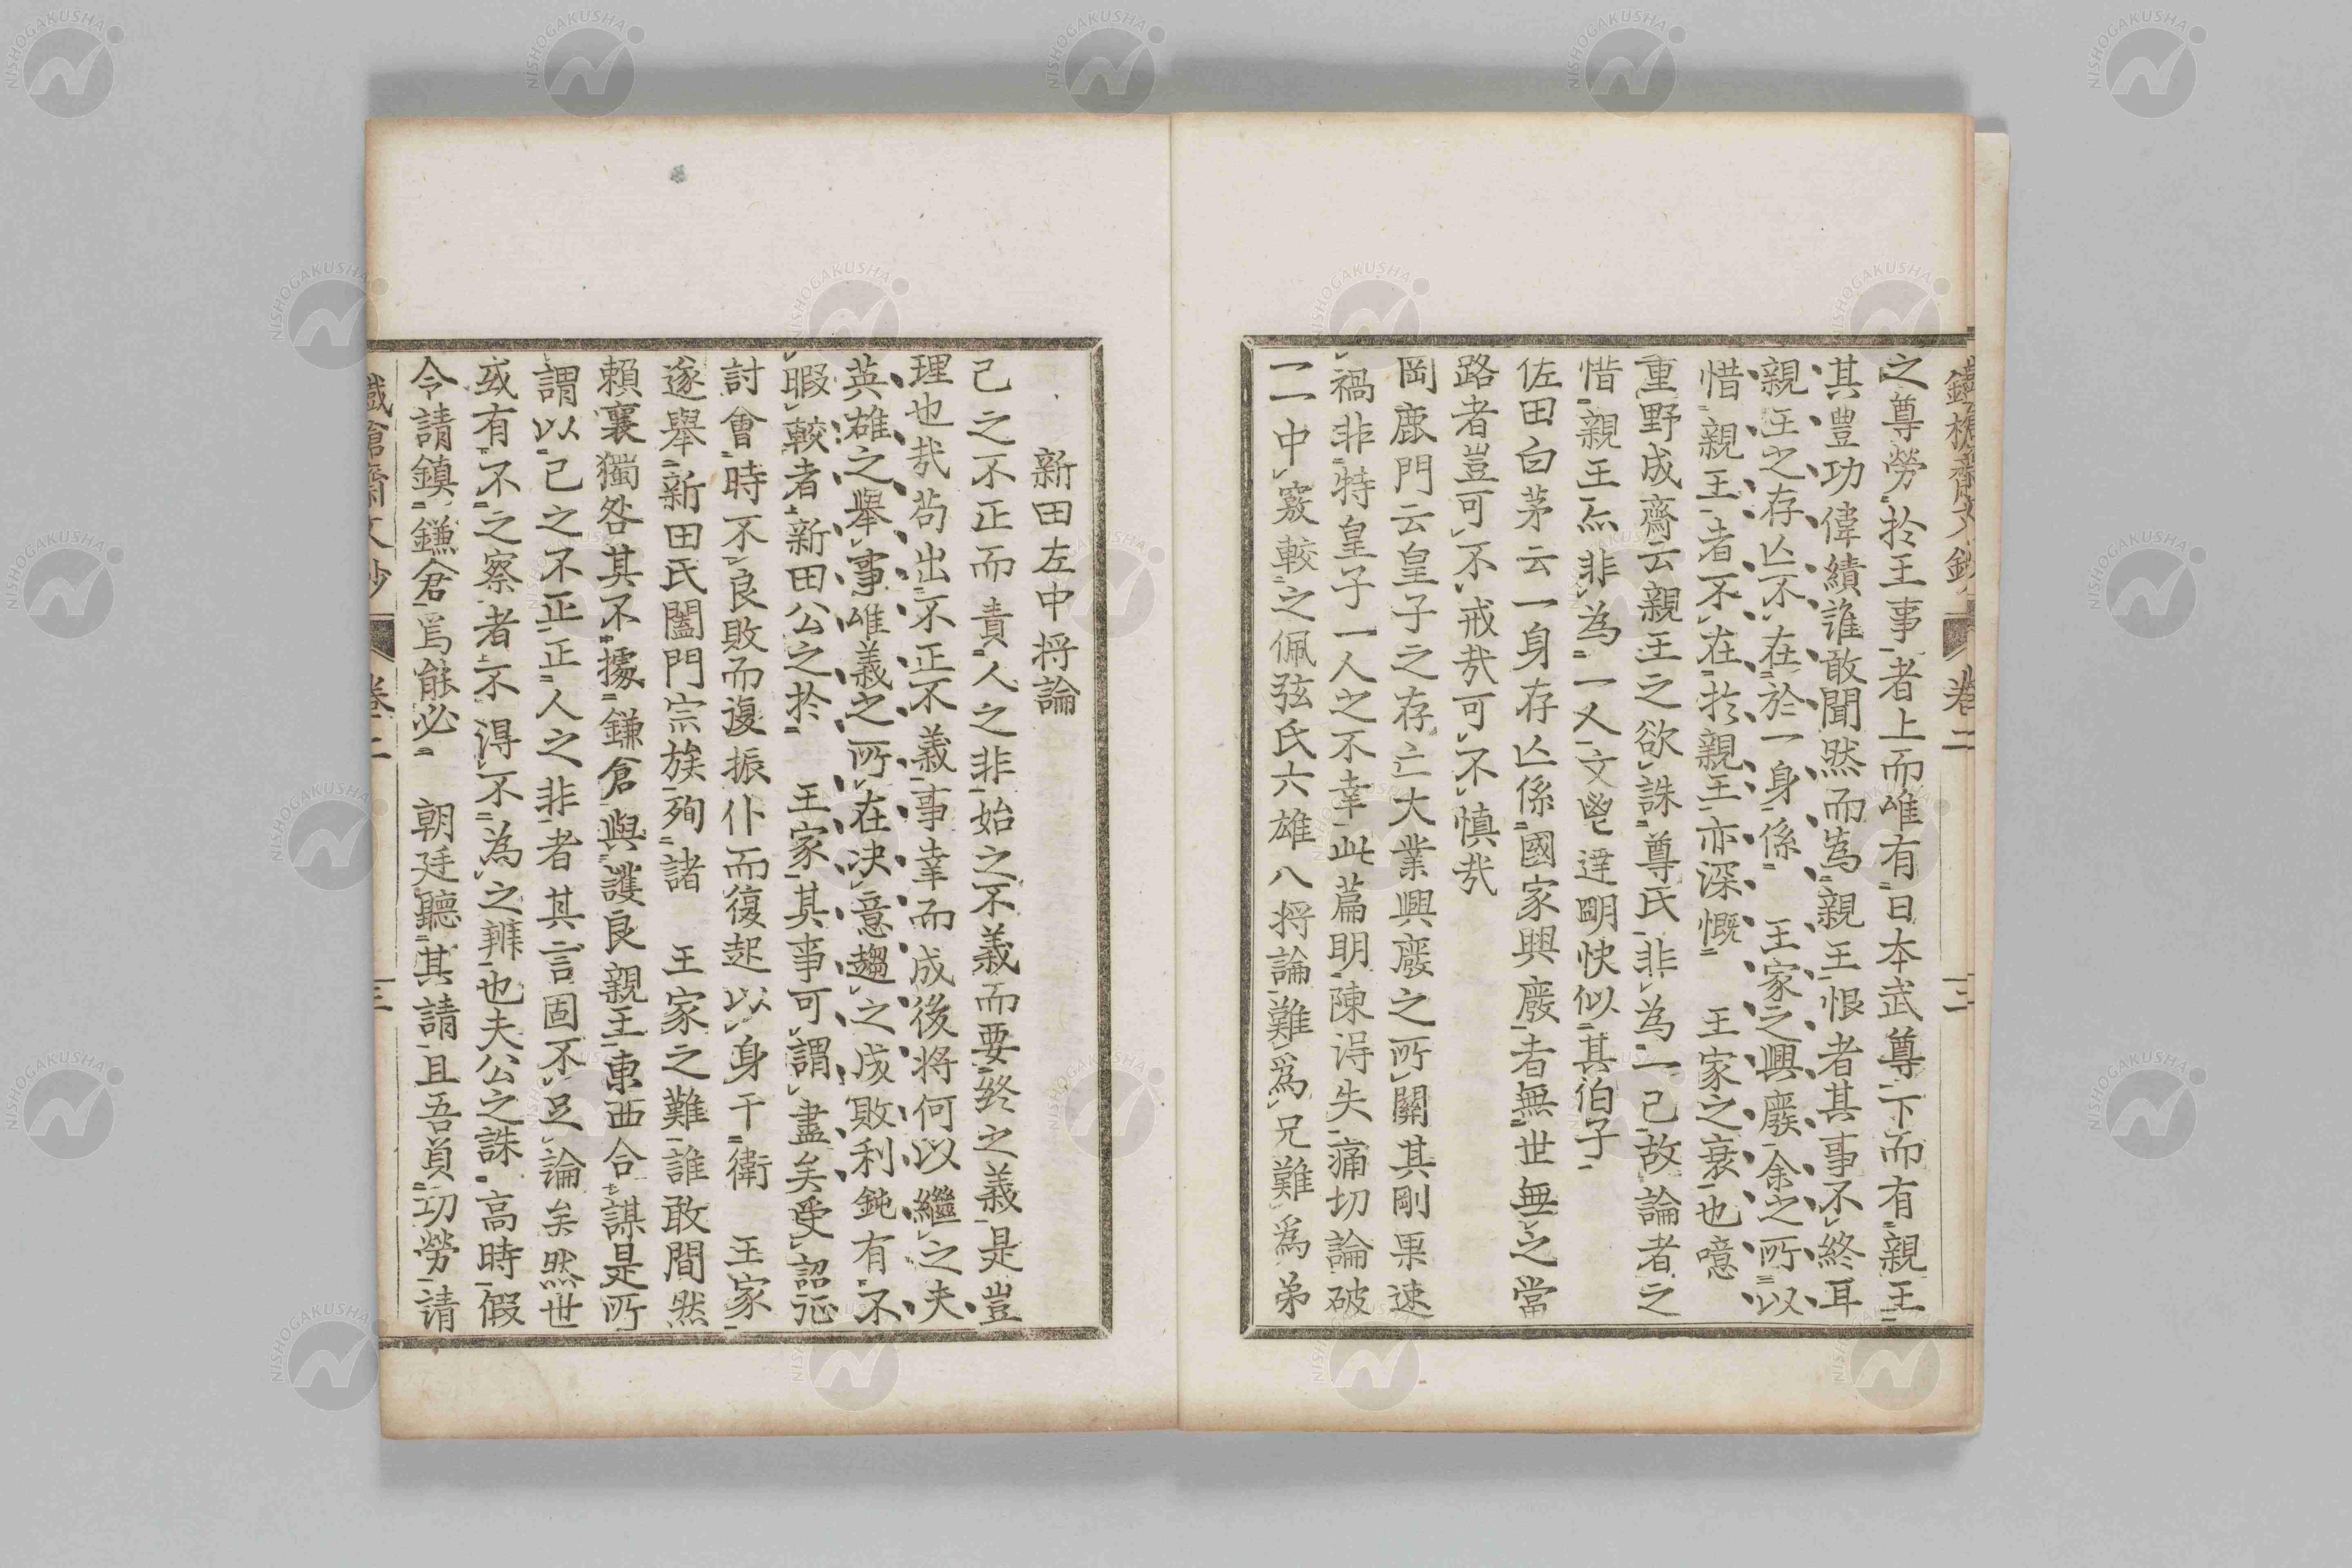 之尊勞於王事者上而唯有日本武尊下而有親王
其豊功偉績誰敢聞然而為親王恨者其事不終耳
親王之存亾不在於一身係　王家之興廢余之所以
惜親王者不在於親王亦深慨　王家之衰也噫
重野成齋云親王之欲誅尊氏非為一己故論者之
惜親王亦非為一人文鬯達明快似其伯子
佐田白茅云一身存亾係國家興廢者無世無之當
路者豈可不戒哉可不慎哉
岡鹿門云皇子之存亡大業興廢之所關其剛果速
禍非特皇子一人之不幸此篇明陳得失痛切論破
一二中竅較之佩弦氏六雄八將論難爲兄難爲弟
新田左中將論
己之不正而責人之非始之不義而要終之義是豈
理也哉苟出不正不義事幸而成後將何以繼之夫
英雄之舉事唯義之所在決意趨之成敗利鈍有不
暇較者新田公之於　王家其事可謂盡矣受詔征
討會時不良敗而復振仆而復起以身干衛　王家
遂舉新田氏闔門宗族殉諸　王家之難誰敢間然
賴襄獨咎其不據鎌倉與護良親王東西合謀是所
謂以己之不正正人之非者其言固不足論矣然世
或有不之察者不得不為之辨也夫公之誅高時假
令請鎮鎌倉焉能必　朝廷聽其請且吾負功勞請
卷二
三
NISHOGAKUSHA